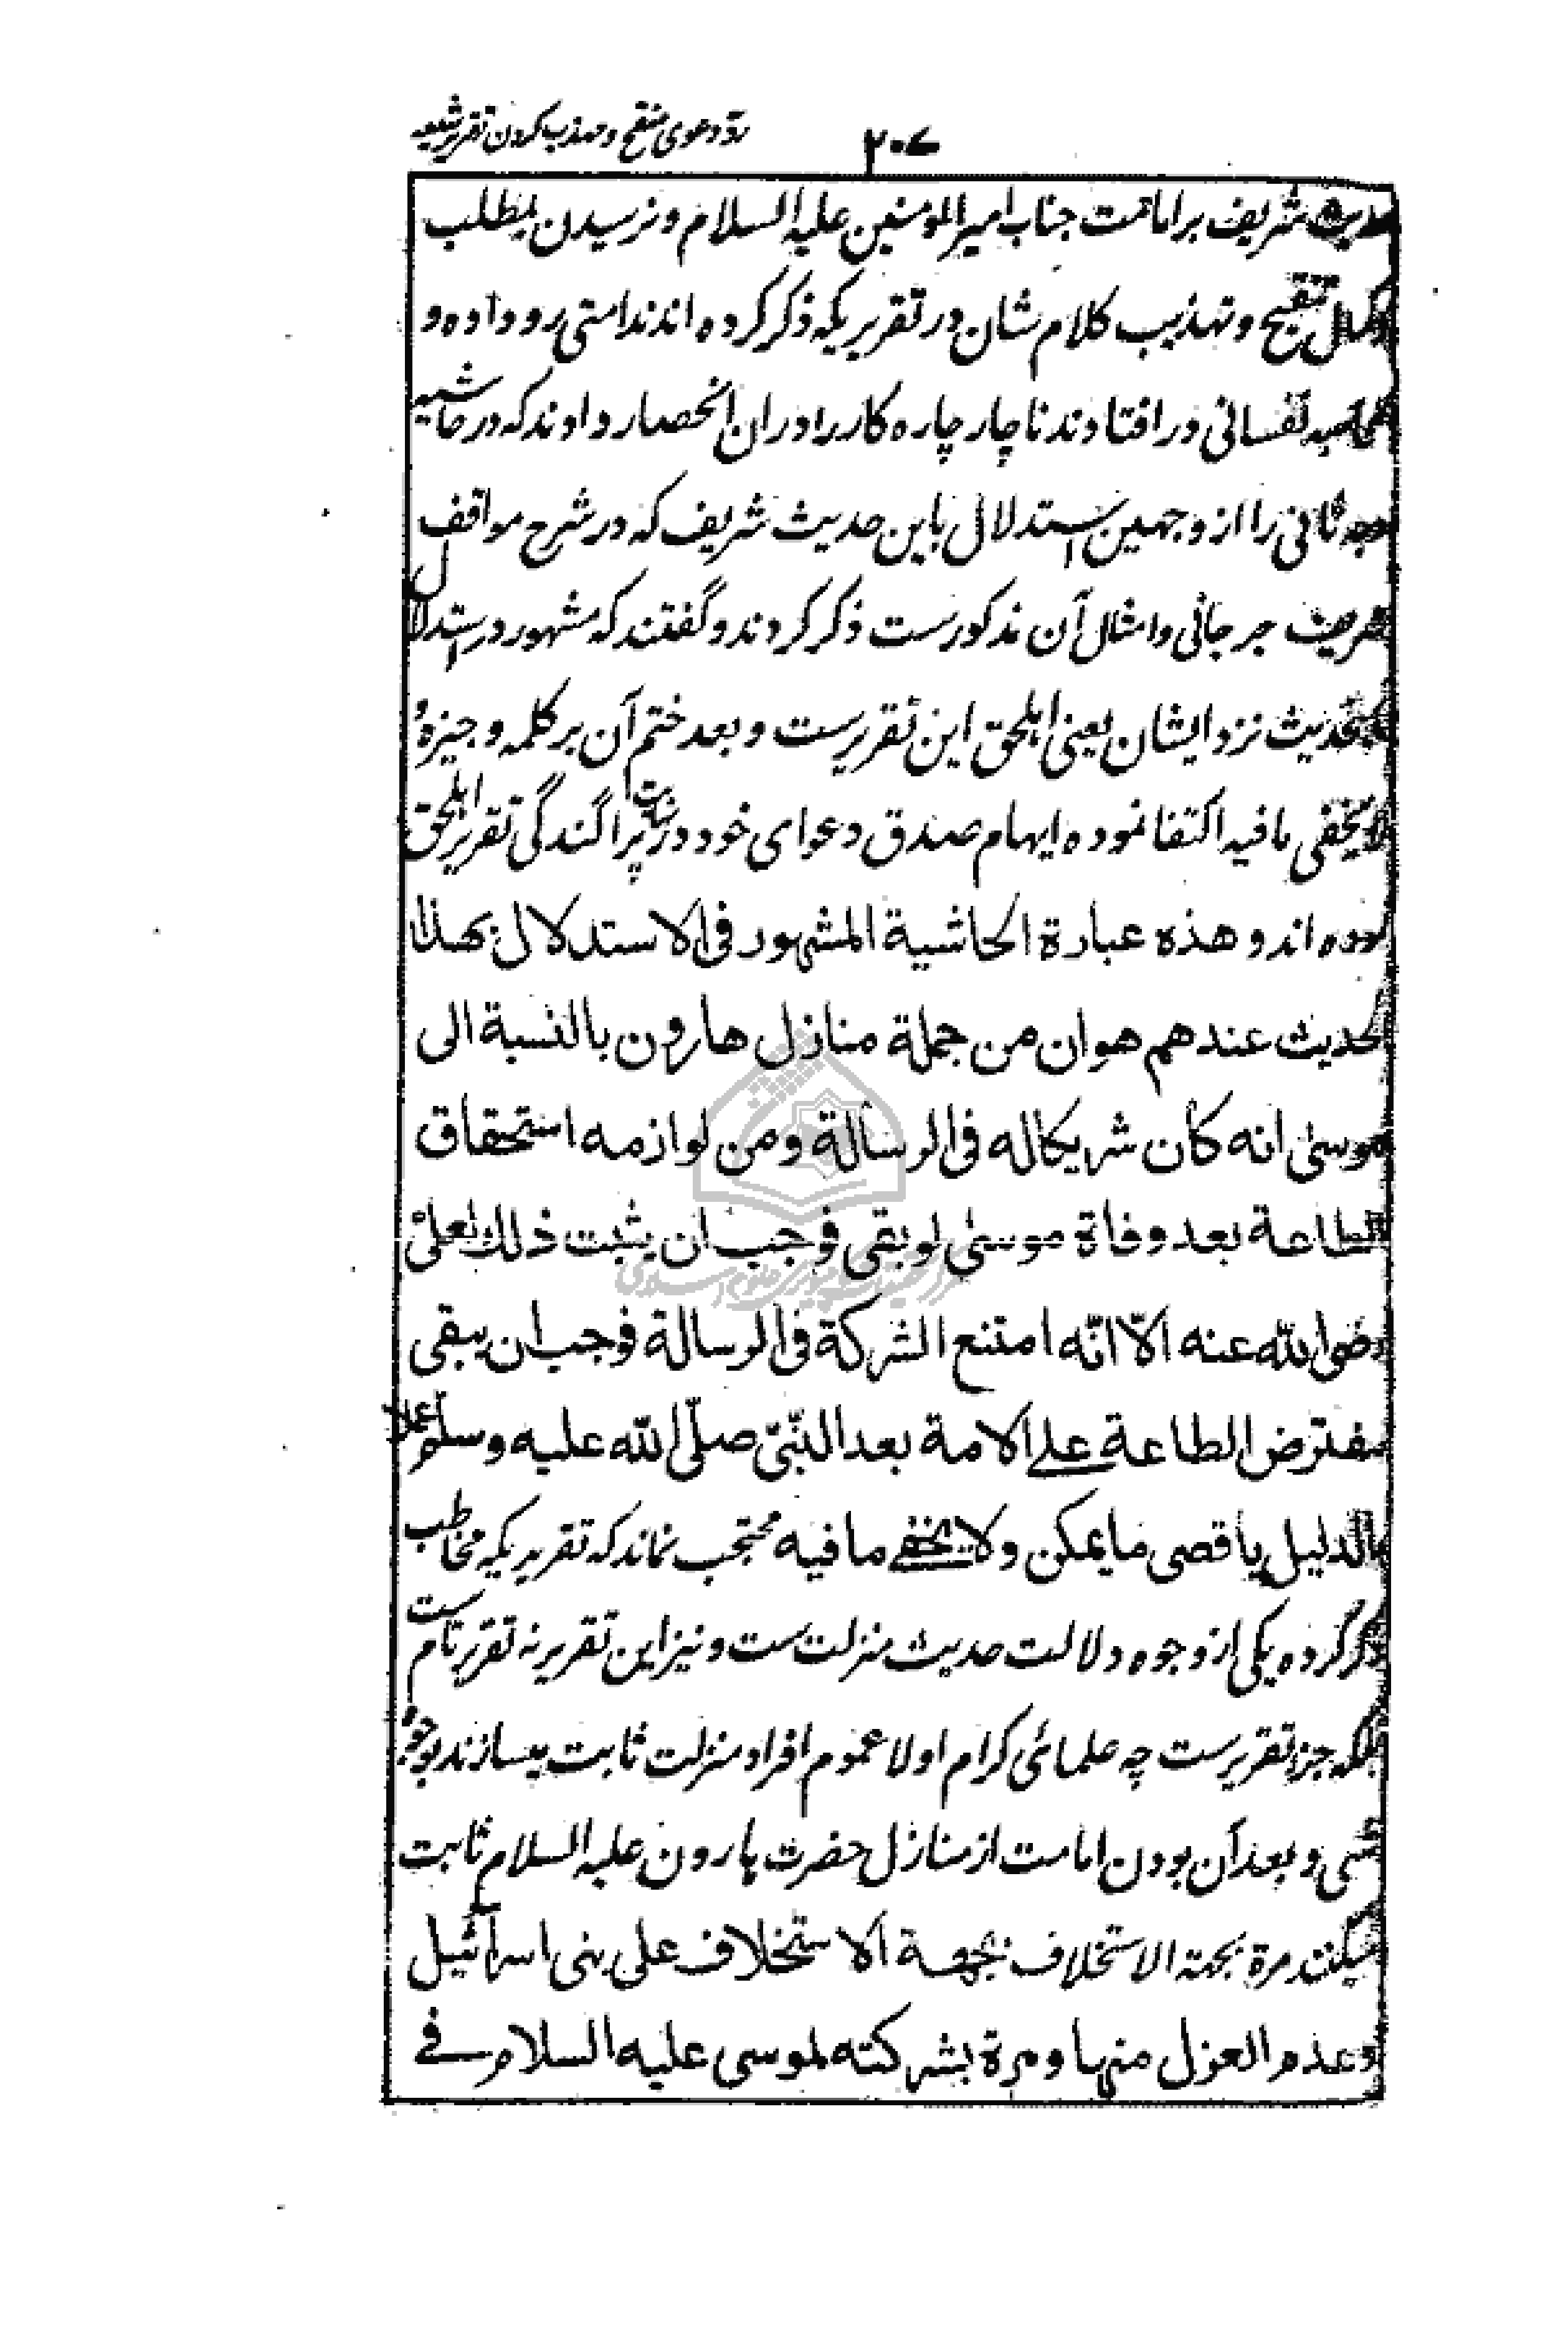 ۲۰۷
ردّ دعوی منقح و مهذب کردن تقریر شیعه
حدیث شریف بر امامت جناب امیر المومنین علیه السلام و نرسیدن بمطلب
و کمال تنقیح و تهذیب کلام شان در تقریریکه ذکر کرده اند ندامتی رو داده و
محاسبه نفسانی در افتادند ناچار چاره کار را در ان انحصار دادند که در حاشیه
وجه ثانی را از وجهین استدلال باین حدیث شریف که در شرح مواقف
شریف جرجانی و امثال آن مذکورست ذکر کردند و گفتند که مشهور در استدلال
بحدیث نزد ایشان یعنی اهلحق این تقریرست و بعد ختم آن بر کلمه وجیزه
و لا یخفی ما فیه اکتفا نموده ایهام صدق دعوای خود در نهایت پراگندگی تقریر اهلحق
نموده اند و هذه عبارة الحاشیة المشهور فی الاستدلال بهذا
الحدیث عندهم هو ان من جملة منازل هارون بالنسبة الی
موسی انه کان شریکا له فی الرسالة و من لوازمه استحقاق
الطاعة بعد وفاة موسی لو بقی فوجب ان یثبت ذلک لعلی
رضی الله عنه الّا انّه امتنع الشرکة فی الرسالة فوجب ان یبقی
مفترض الطاعة علی الامة بعد النّبیّ صلّی الله علیه و سلّم عملا
بالدلیل باقصی ما یمکن و لا یخفی ما فیه محتجب نماند که تقریریکه مخاطب
ذکر کرده یکی از وجوه دلالت حدیث منزلت ست و نیز این تقریر نه تقریر تام ست
بلکه جزء تقریرست چه علمائی کرام اولا عموم افراد منزلت ثابت میسازند بوجوه
شتی و بعد آن بودن امامت از منازل حضرت هارون علیه السلام ثابت
میکنند مرة بجهة الاستخلاف بجهة الاستخلاف علی بنی اسرائیل
و عدم العزل منها و مرة بشرکته لموسی علیه السلام فی